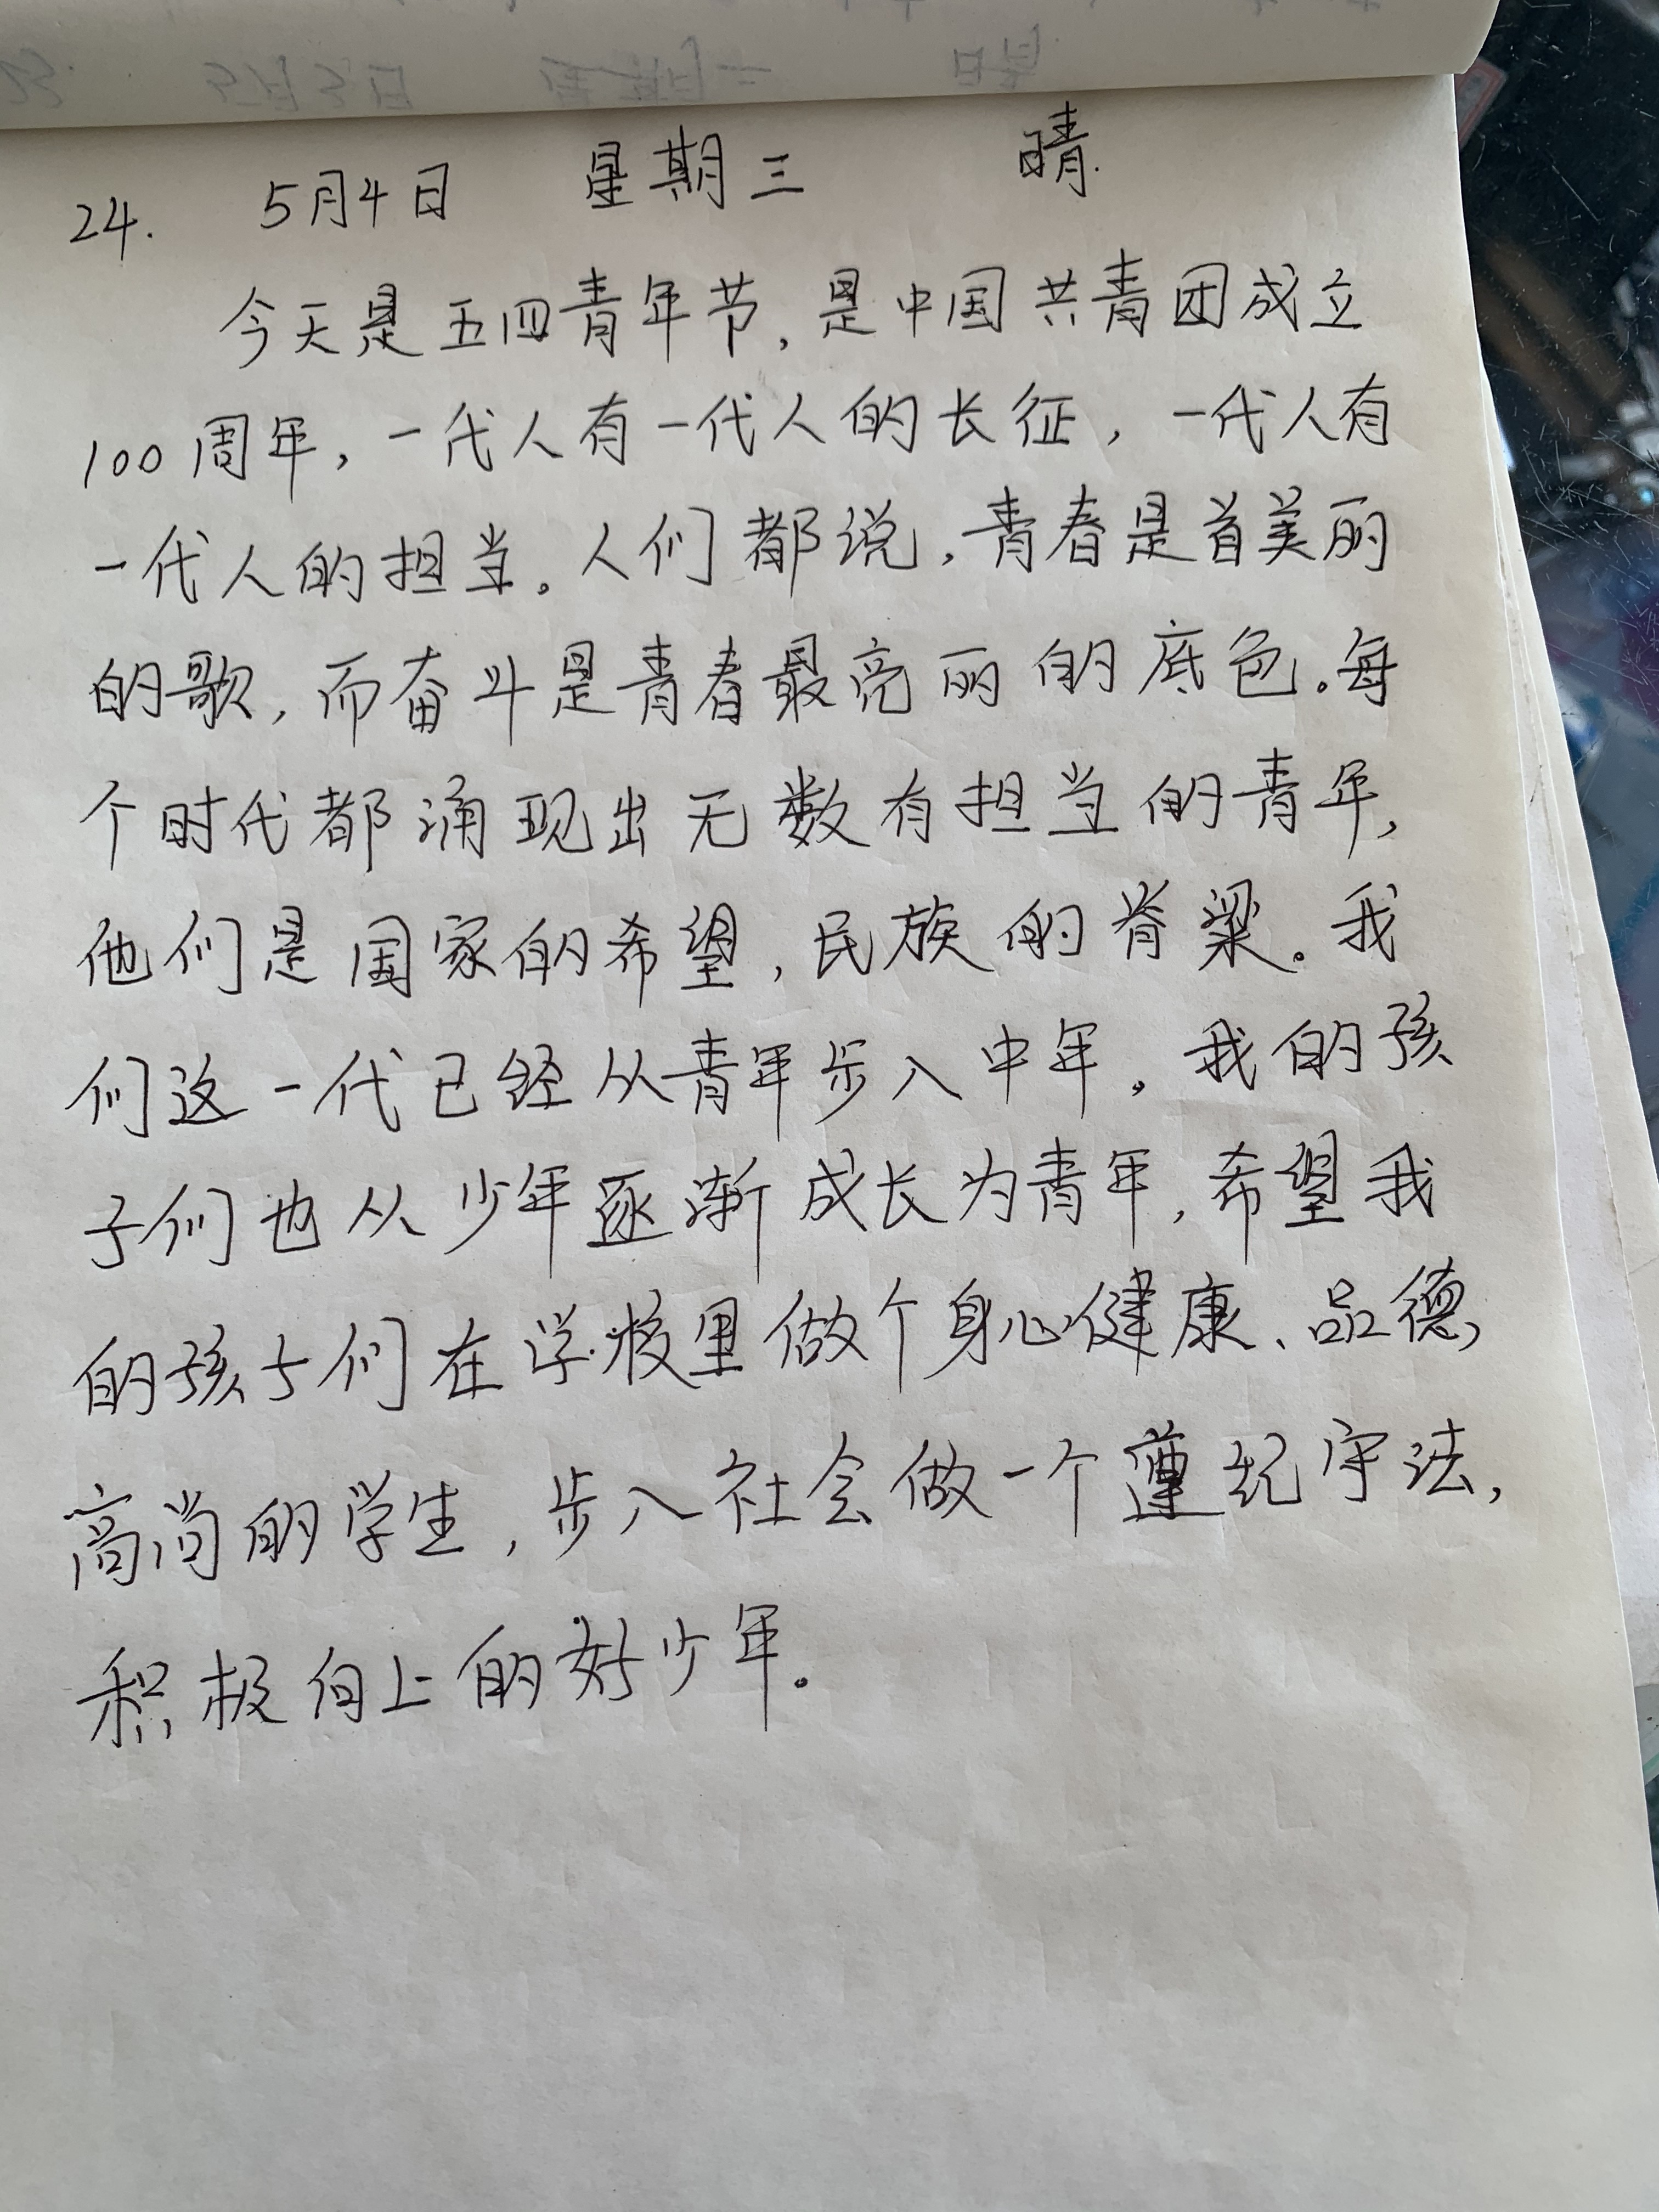 24. 5月4日 星期三 晴.
今天是五四青年节,是中国共青团成立
100周年,一代人有一代人的长征,一代人有
一代人的担当。人们都说,青春是首美丽
的歌,而奋斗是青春最亮丽的底色。每
个时代都涌现出无数有担当的青年,
他们是国家的希望,民族的脊梁。我
们这一代已经从青年步入中年。我的孩
子们也从少年逐渐成长为青年,希望我
的孩子们在学校里做个身心健康、品德
高尚的学生,步入社会做一个遵纪守法,
积极向上的好少年。